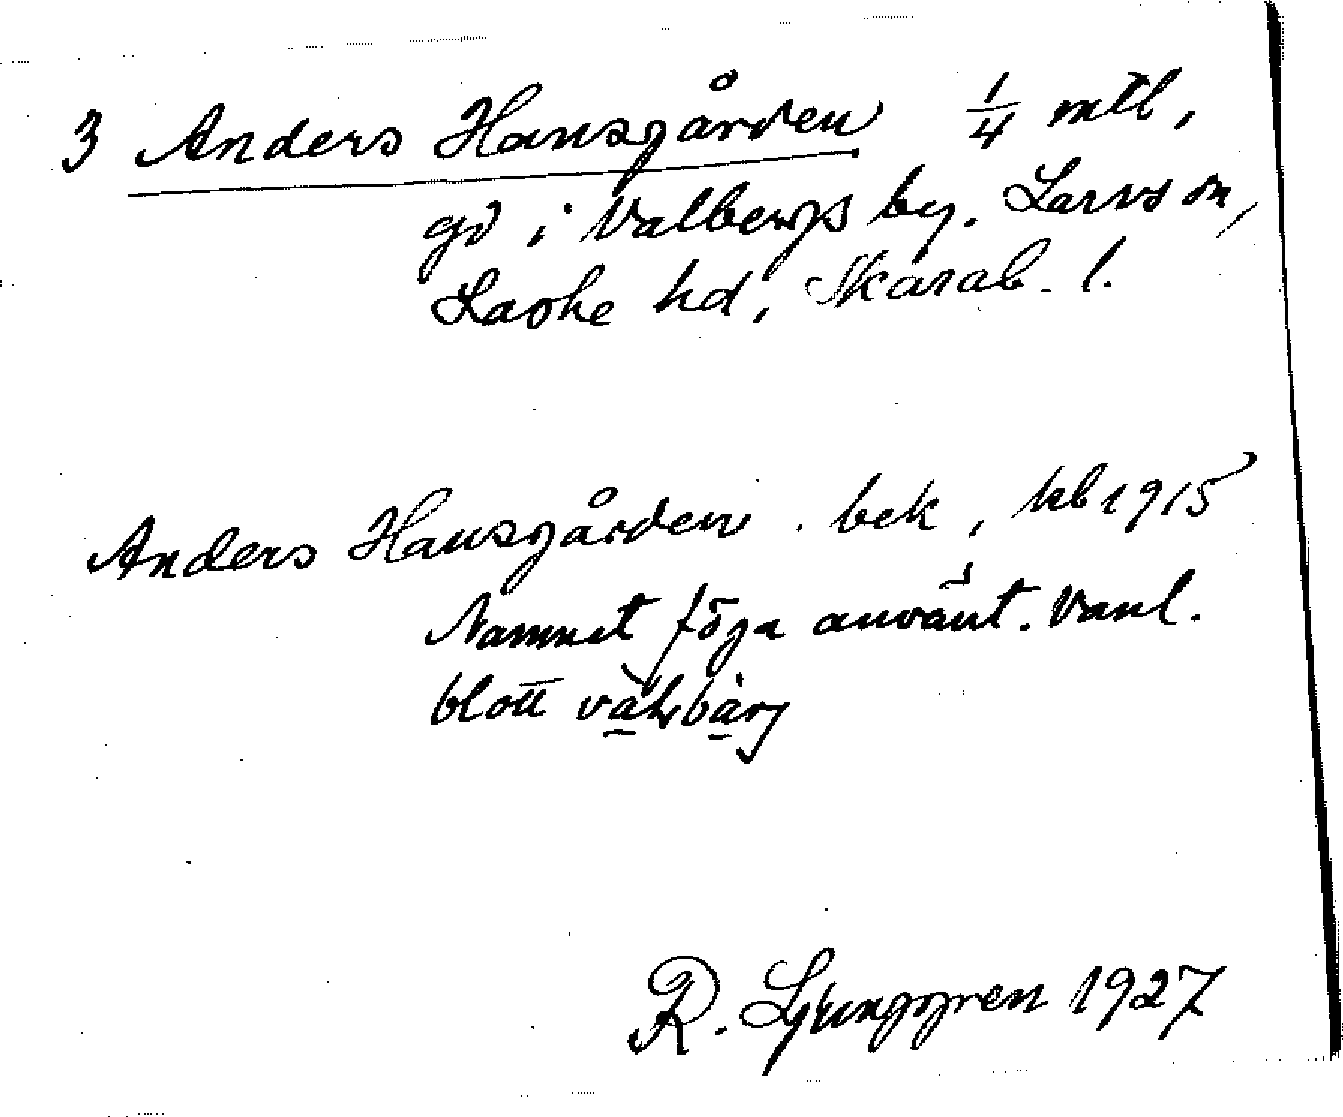 3 Anders Hansgården 1/4 mtl,
gd i Valbergs by. Larvs sn,
Laske hd, Skarab. l.
Anders Hansgården. bek, kb 1915
Namnet föga använt. Vanl.
blott
R. Ljunggren 1927